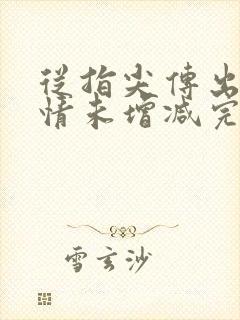 從指尖傳出
情未增減完
雪玄沙